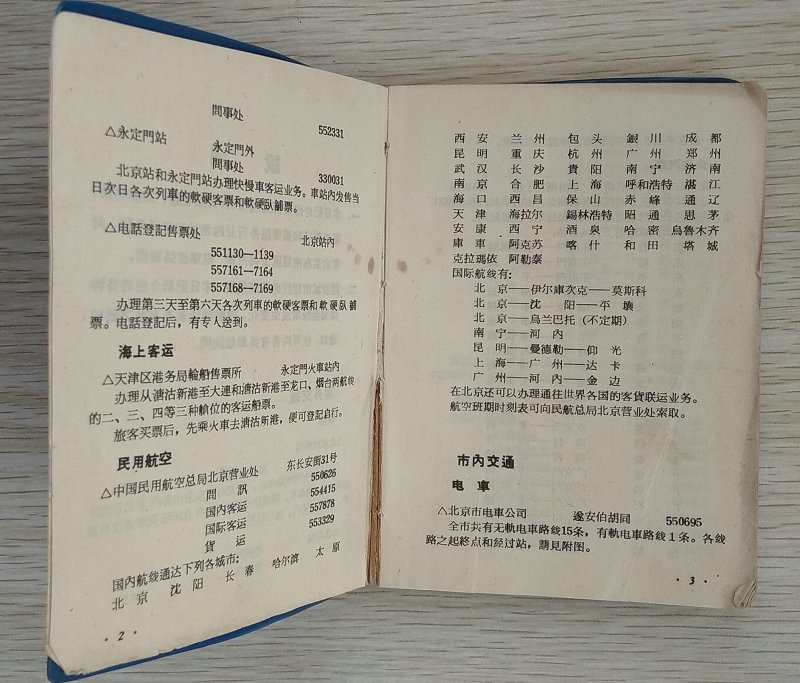 問事处 552331
△永定門站 永定門外
問事处 330031
北京站和永定門站办理快慢車客运业务。車站內发售当
日次日各次列車的軟硬客票和軟硬臥舖票。
△电話登記售票处 北京站內
551130—1139
557161—7164
557168—7169
办理第三天至第六天各次列車的軟硬客票和軟硬臥舖
票。电話登記后，有专人送到。
海上客运
△天津区港务局輪船售票所 永定門火車站內
办理从溏沽新港至大連和溏沽新港至龙口、烟台两航线
的二、三、四等三种艙位的客运船票。
旅客买票后，先乘火車去溏沽新港，便可登記自行。
民用航空
△中国民用航空总局北京营业处 东长安街31号
問訊 550626
国内客运 554415
国际客运 557878
貨运 553329
国内航线通达下列各城市：
北京 沈阳 长春 哈尔滨 太原
·2·
西安 兰州 包头 銀川 成都
昆明 重庆 杭州 广州 郑州
武汉 长沙 貴阳 南宁 济南
南京 合肥 上海 呼和浩特 湛江
海口 西昌 保山 赤峰 通辽
天津 海拉尔 錫林浩特 昭通 思茅
安康 西宁 酒泉 哈密 烏魯木齐
庫車 阿克苏 喀什 和田 塔城
克拉瑪依 阿勒泰
国际航线有：
北京——伊尔庫次克——莫斯科
北京——沈阳——平壤
北京——烏兰巴托（不定期）
南宁——河内
昆明——曼德勒——仰光
上海——广州——达卡
广州——河内——金边
在北京还可以办理通往世界各国的客貨联运业务。
航空班期时刻表可向民航总局北京营业处索取。
市内交通
电車
△北京市电車公司 遂安伯胡同 550695
全市共有无軌电車路线15条，有軌电車路线1条。各线
路之起終点和经过站，請見附图。
·3·